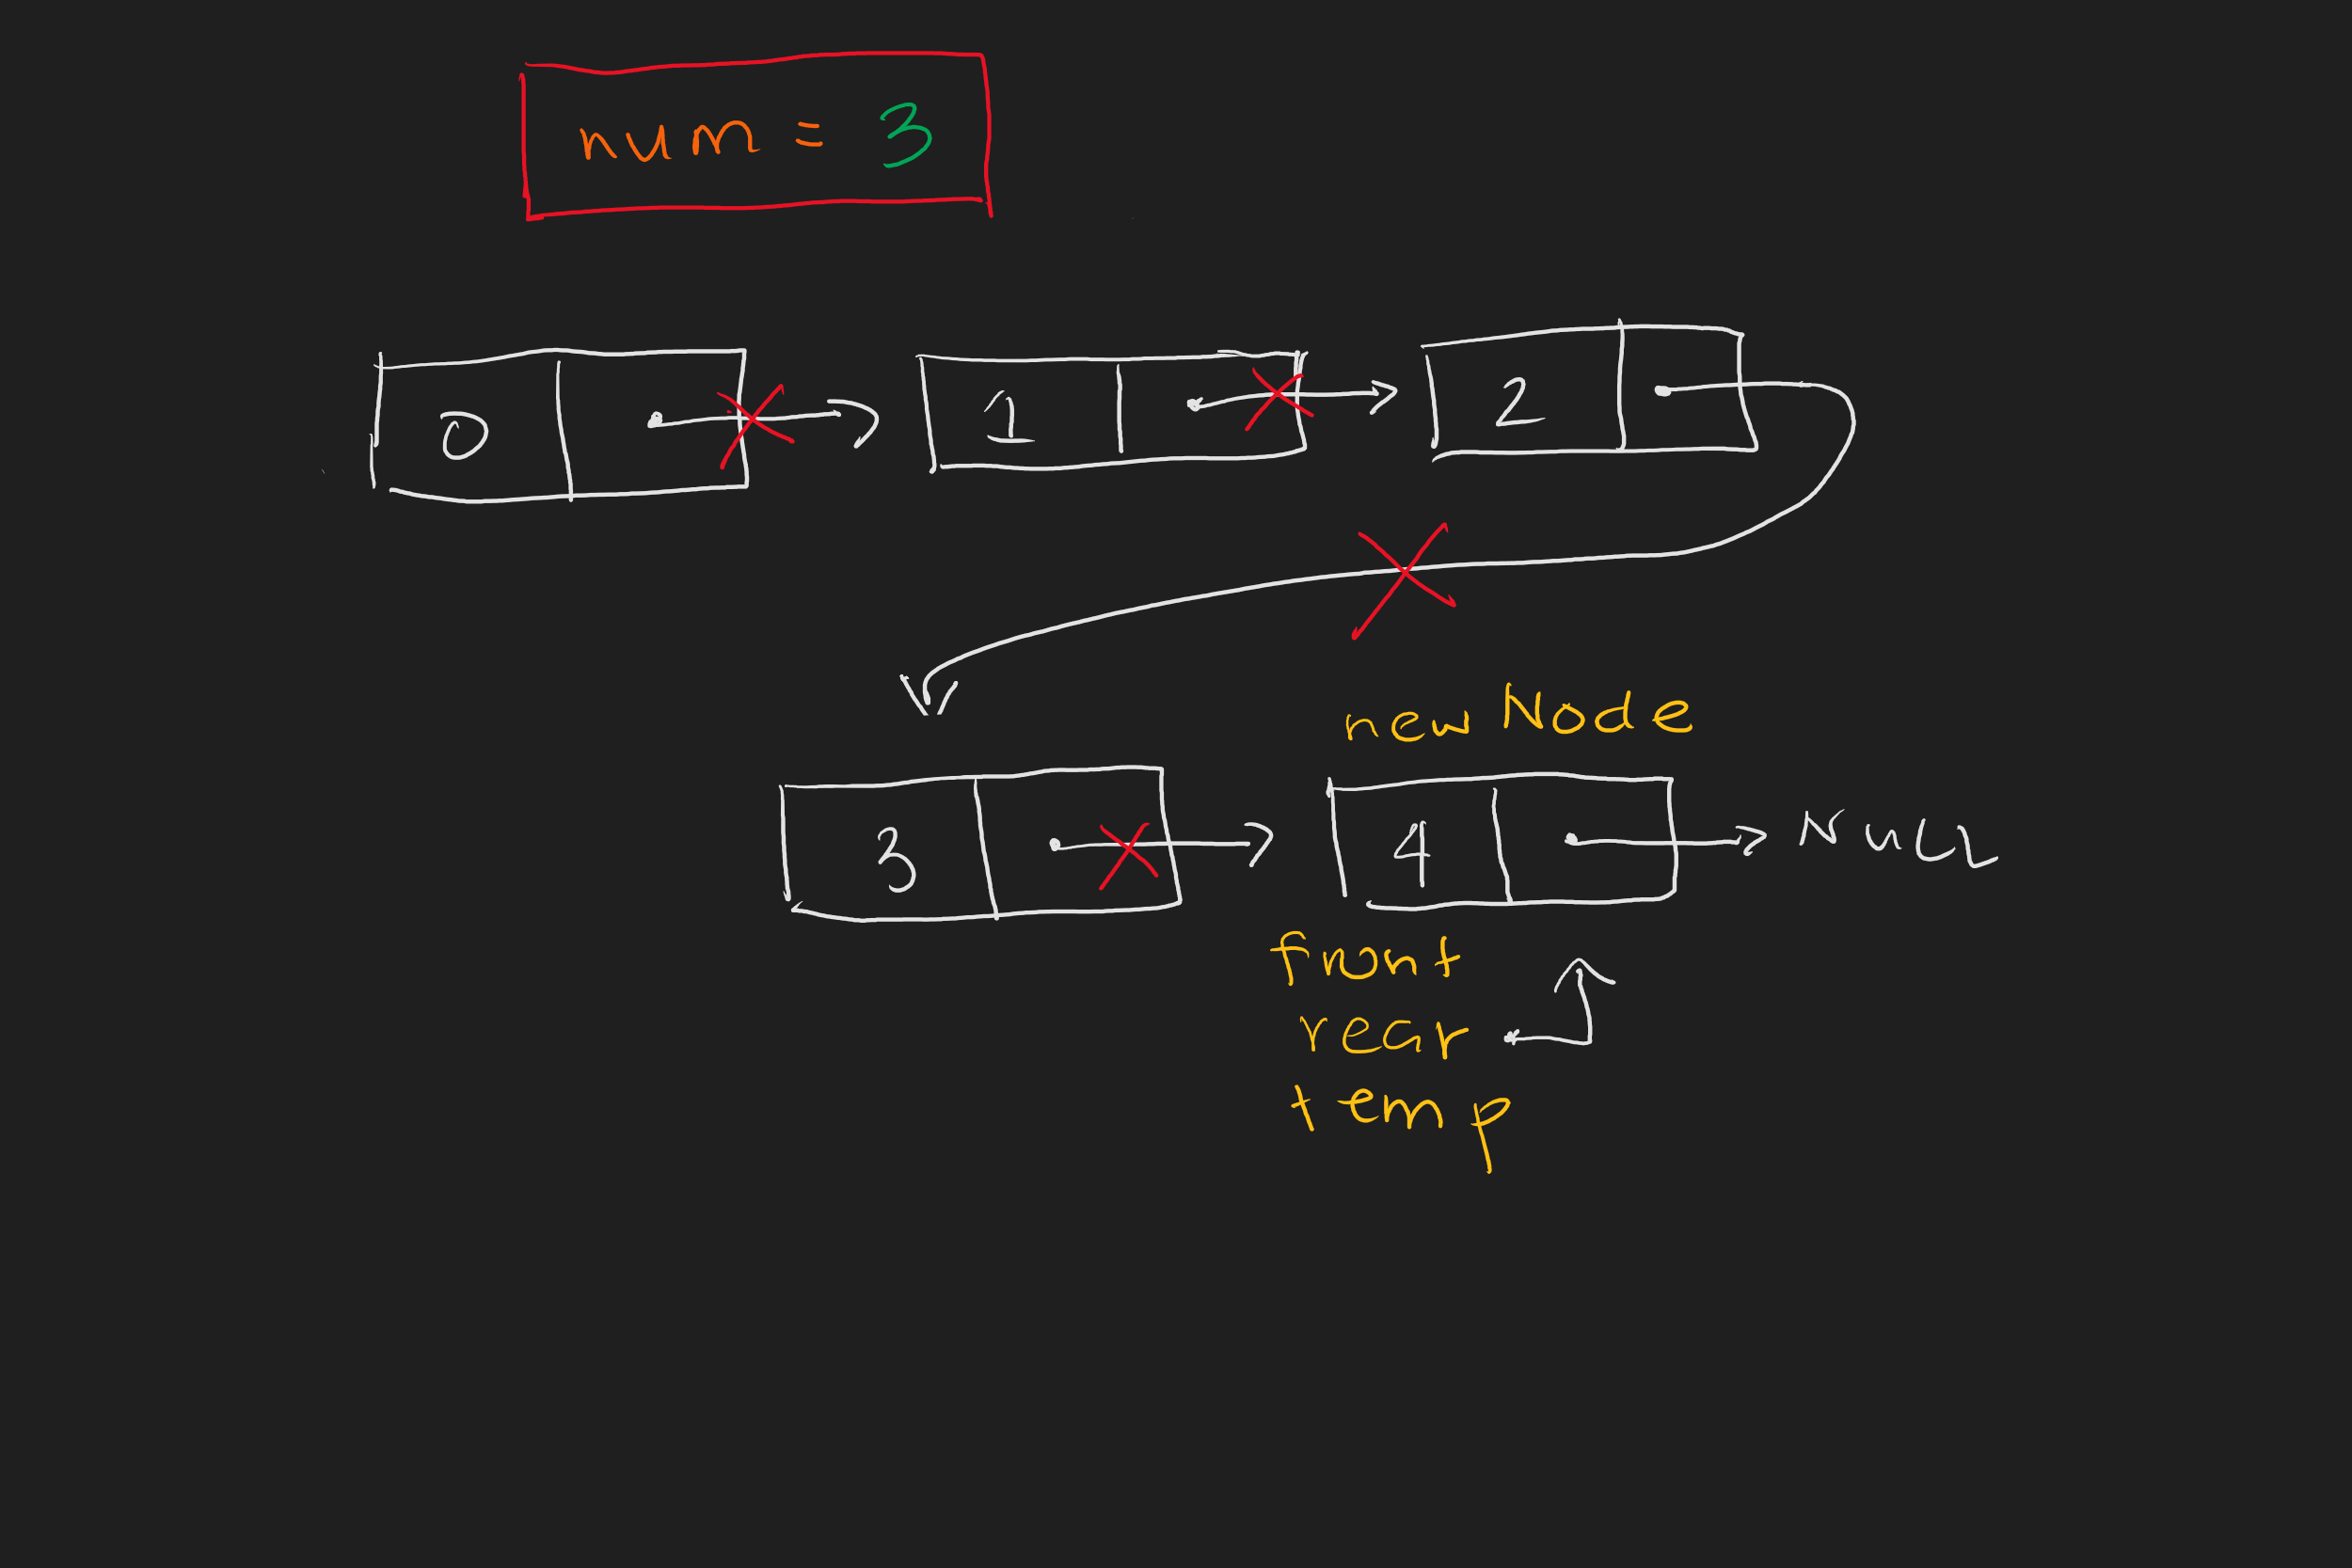 num = 3
0
1
2
newNode
3
4
NULL
front
rear
temp